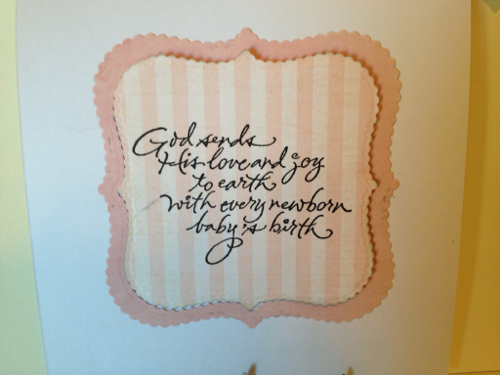 God sends
His love and joy
to earth
with every newborn
baby's birth